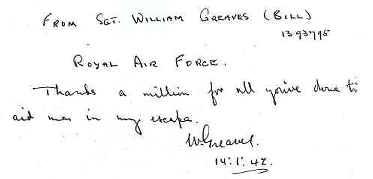 FROM SGT. WILLIAM GREAVES (BILL)
1393795
ROYAL AIR FORCE.
Thanks a million for all you've done to
aid me in my escape.
WGreaves.
14:1:42.